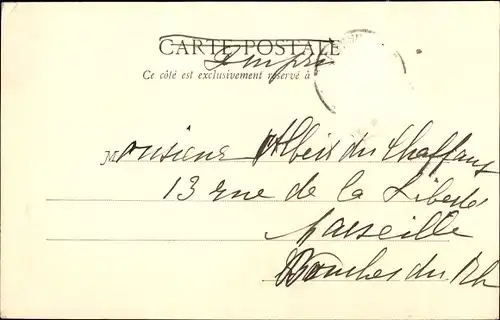 CARTE POSTALE
Ce côté est exclusivement réservé à
Monsieur Albert du Chaffaut
13 rue de la Liberté
Marseille
Bouches du Rh